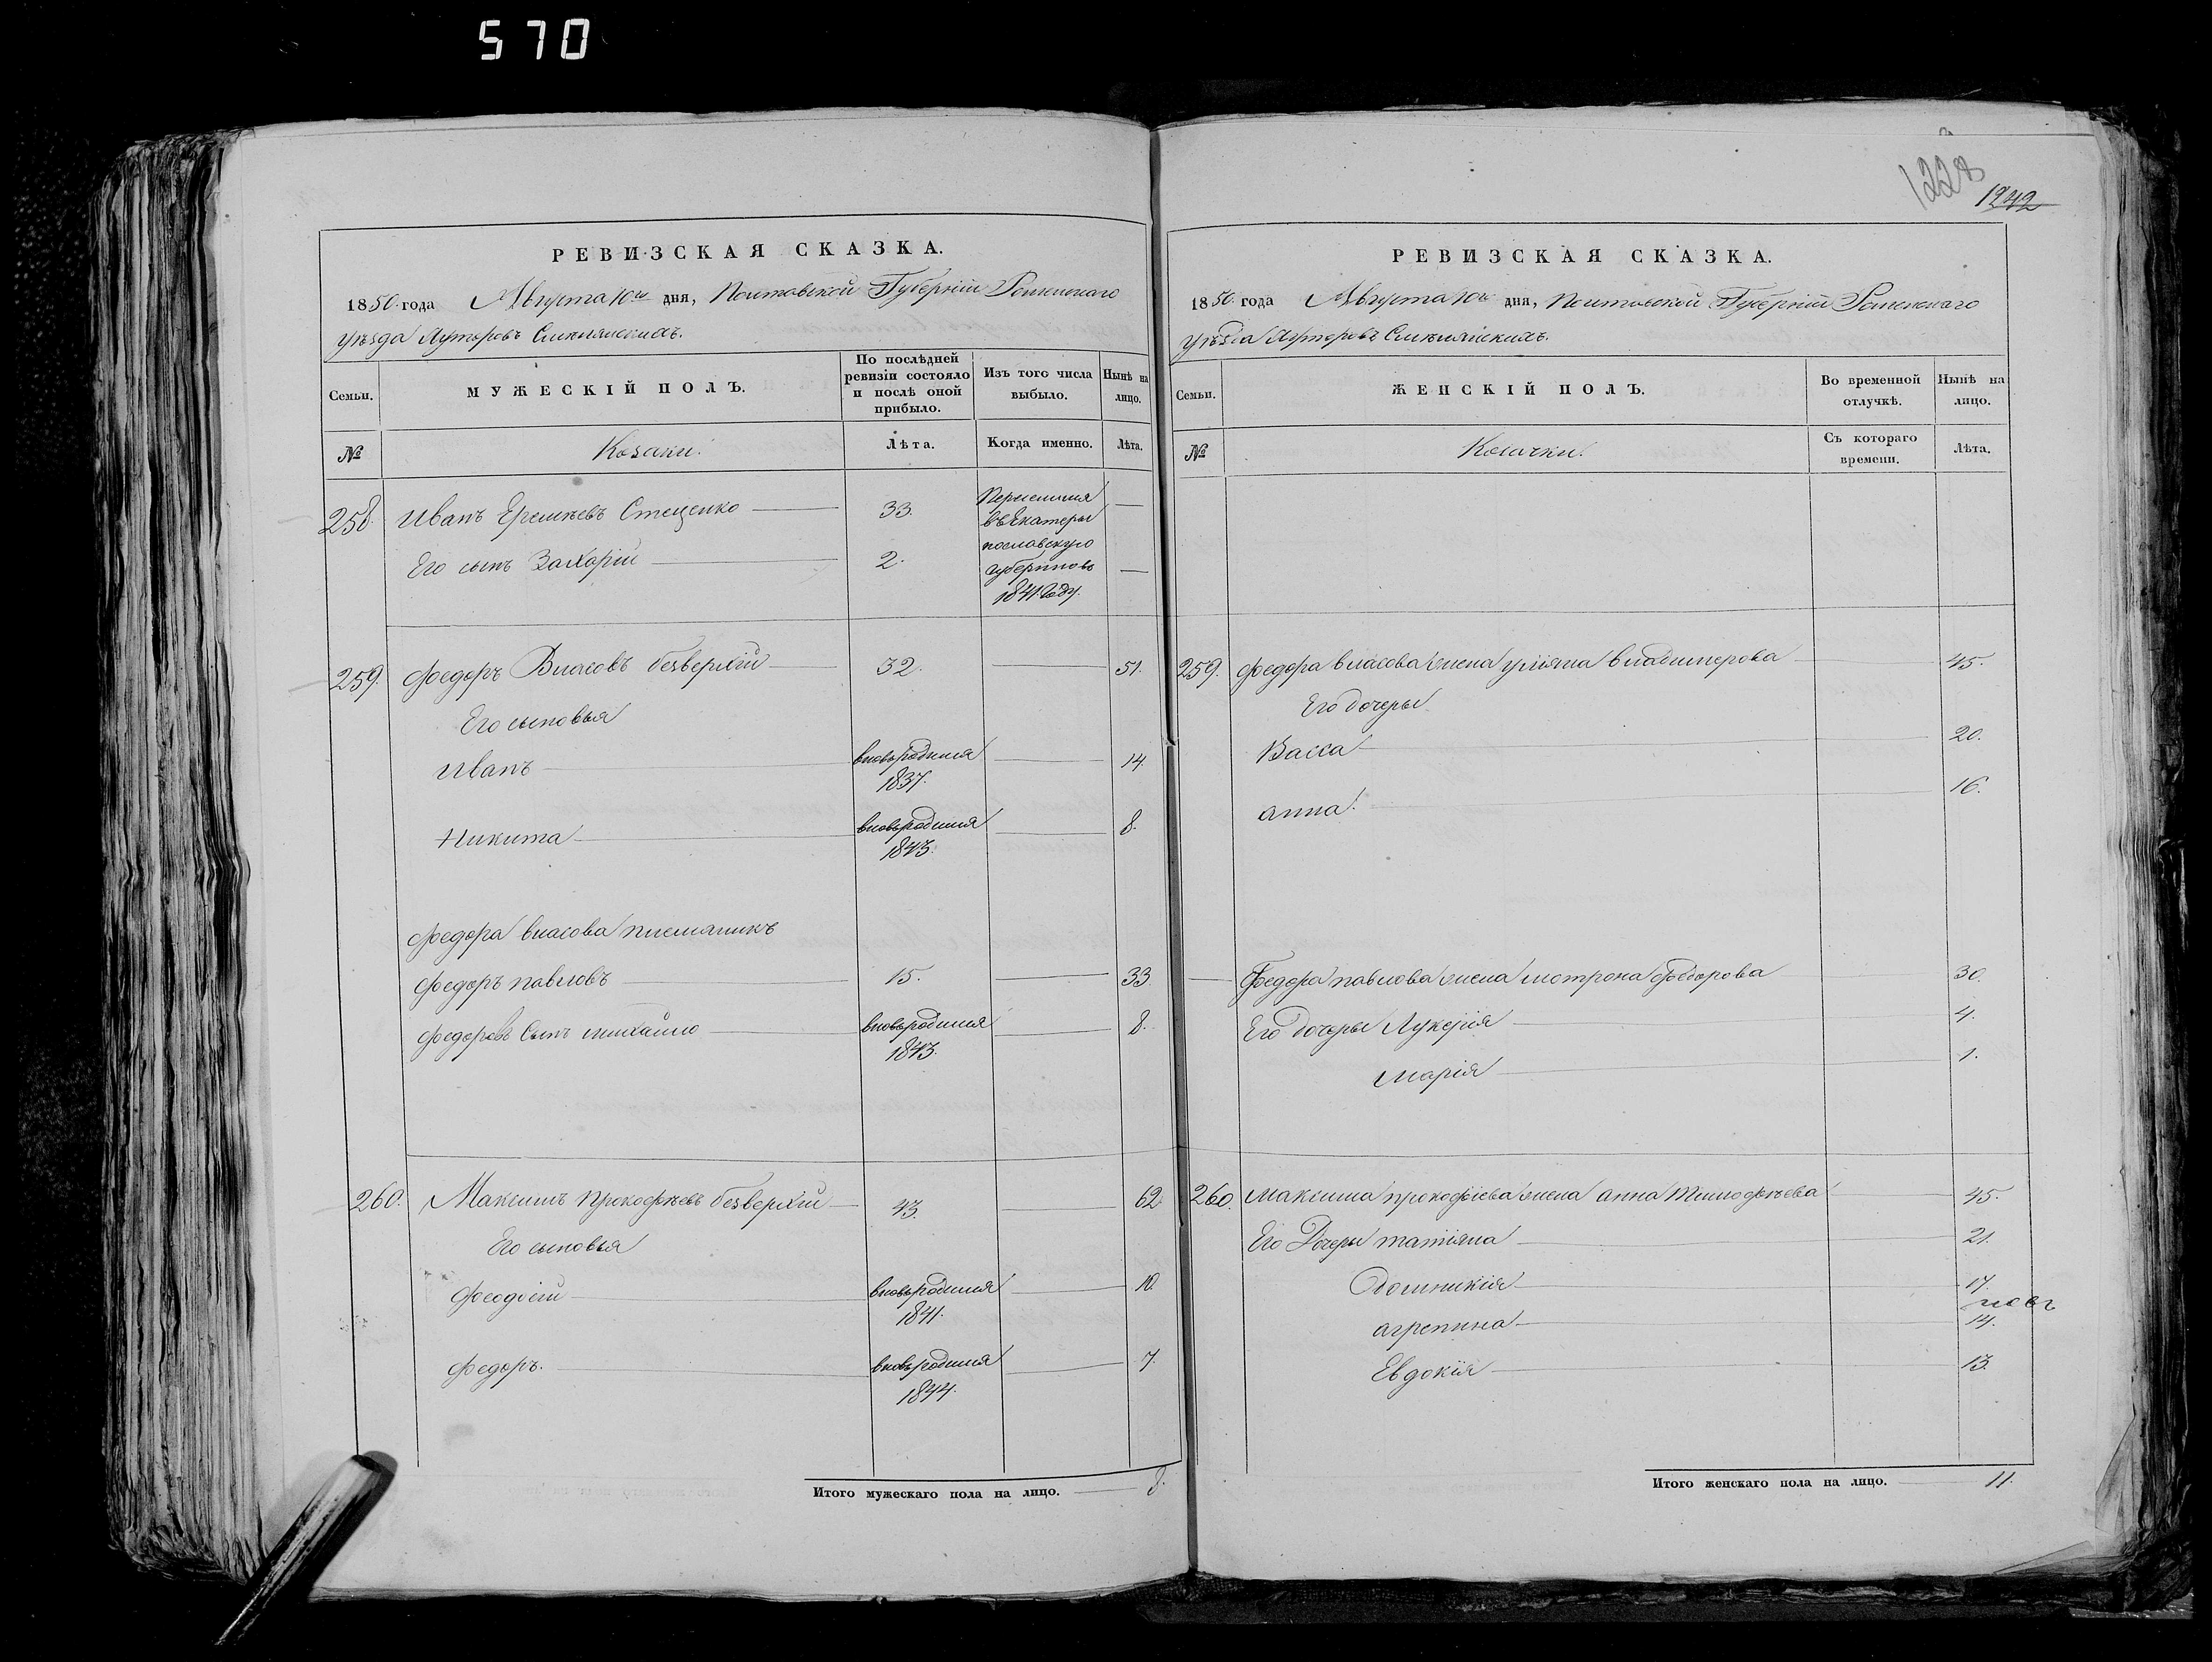 570
1228
1242
РЕВИЗСКАЯ СКАЗКА.
1850 года Августа 10го дня, Полтавской Губерніи Роменскаго
уѣзда Хуторовъ Смѣлянскихъ.
Семьи.
МУЖЕСКІЙ ПОЛЪ.
По послѣдней ревизіи состояло и послѣ оной прибыло.
Изъ того числа выбыло.
Нынѣ на лицо.
№
Козаки.
Лѣта.
Когда именно.
Лѣта.
258. Иванъ Еремѣевъ Стеценко 33. Переселился
въ Екатери
Его сынъ Захарій 2. нославскую
губернію въ
1841. году.
259. Федоръ Власовъ безверхій 32. 51.
Его сыновья
Иванъ вновьродился 14.
1837.
Никита вновьродился 8.
1843.
Федора власова племяникъ
федоръ павловъ 15. 33.
федоровъ Сынъ михайло вновьродился 8.
1843.
260. Максимъ прокофѣевъ безверхій 43. 62
Его сыновья
Феодосій вновьродился 10.
1841.
Федоръ. вновьродился 7.
1844.
Итого мужескаго пола на лицо. 8.
РЕВИЗСКАЯ СКАЗКА.
1850 года Августа 10го дня, Полтавской Губерніи Роменскаго
уѣзда Хуторовъ Смѣлянскихъ.
Семьи.
ЖЕНСКІЙ ПОЛЪ.
Во временной отлучкѣ.
Нынѣ на лицо.
№
Козачки.
Съ котораго времени.
Лѣта.
259. федора власова жена уліяна владимерова 45.
Его дочеры
Васса 20.
анна. 16.
Федора павлова жена мотрона федорова 30.
Его дочеры Лукерія 4.
марія 1.
260. максима прокофіева жена анна Тимофѣева 45.
Его Дочеры татіяна 21.
Домникія 17.
агрепина 14.
Евдокія 13.
Итого женскаго пола на лицо. 11.